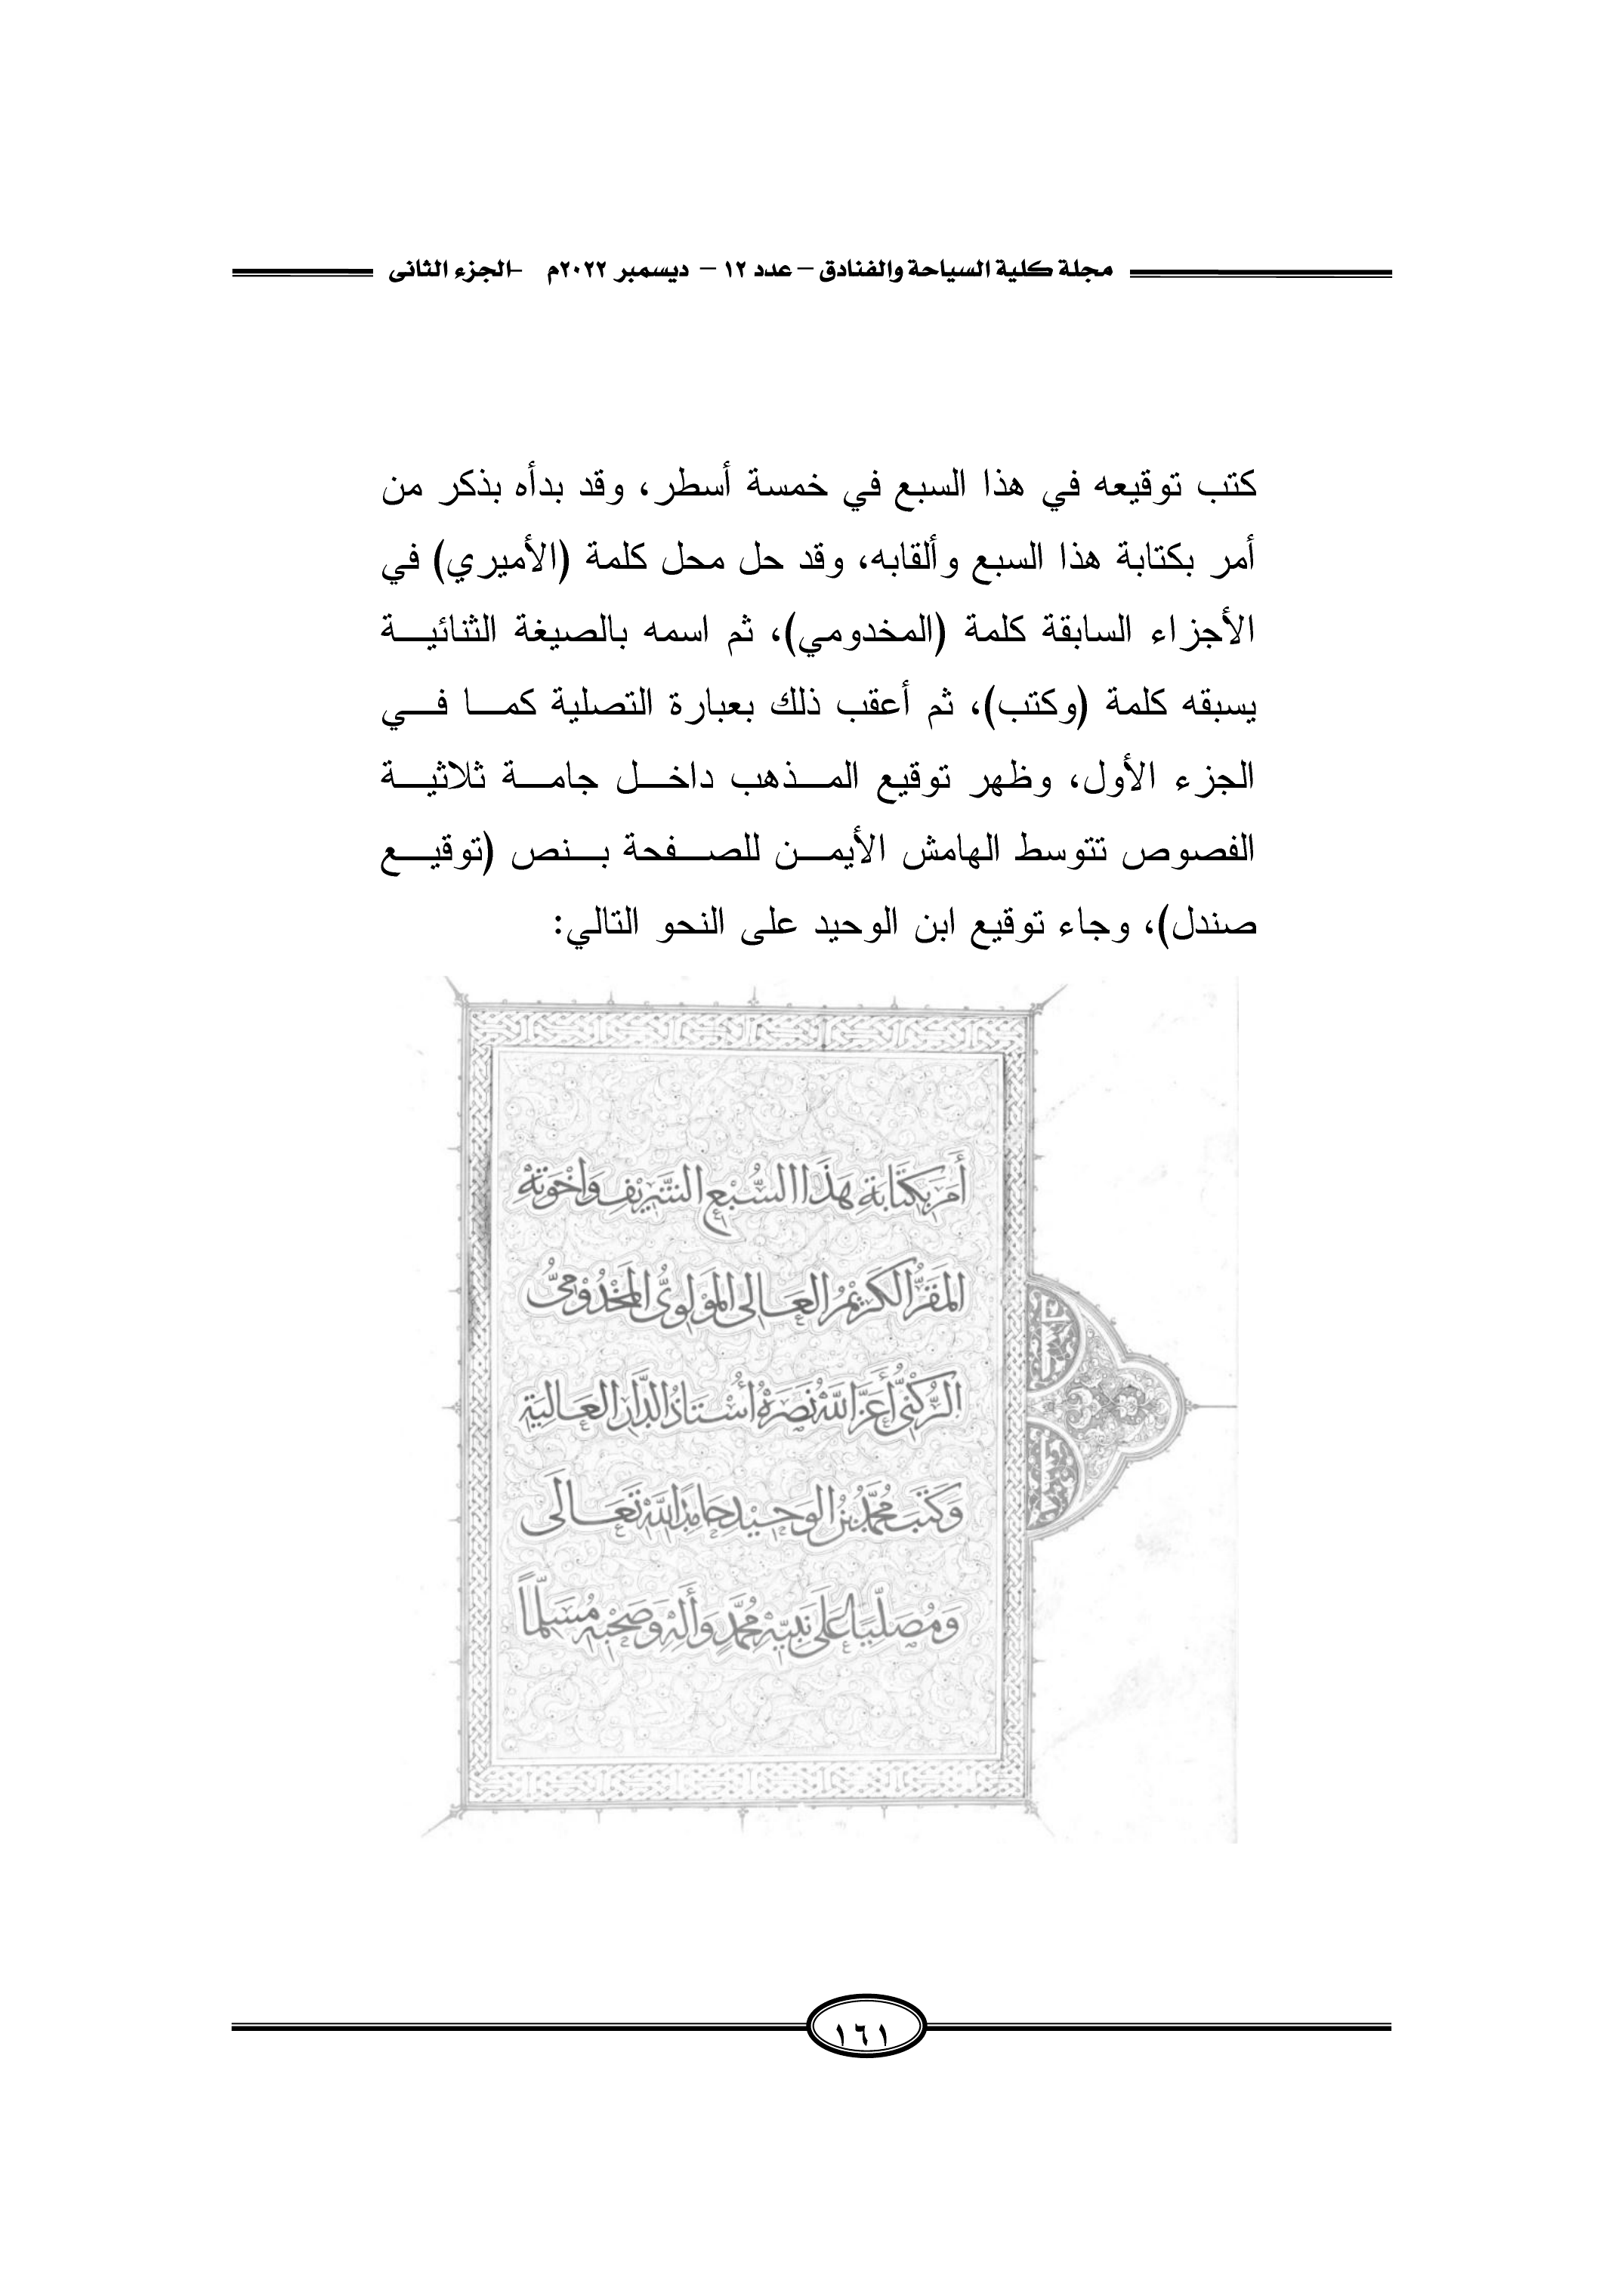 مجلة كلية السياحة والفنادق – عدد ١٢ – ديسمبر ٢٠٢٢م -الجزء الثانى
كتب توقيعه في هذا السبع في خمسة أسطر، وقد بدأه بذكر من
أمر بكتابة هذا السبع وألقابه، وقد حل محل كلمة (الأميري) في
الأجزاء السابقة كلمة (المخدومي)، ثم اسمه بالصيغة الثنائيـــة
يسبقه كلمة (وكتب)، ثم أعقب ذلك بعبارة التصلية كمـــا فـــي
الجزء الأول، وظهر توقيع المـــذهب داخـــل جامـــة ثلاثيـــة
الفصوص تتوسط الهامش الأيمـــن للصـــفحة بـــنص (توقيـــع
صندل)، وجاء توقيع ابن الوحيد على النحو التالي:
أَمَرَ بِكتَابَةِ هَذَا السُّبْعِ الشَّرِيْفِ وَاخْوَتِهْ
المَقَرُّ الكَرِيْمُ العَالى المَوْلَوِىُّ المَخْدُوْمِىُّ
الرُّكْنِىُّ أَعَزَّ اللهُ نَصْرَهُ أُسْتَاذُ الدَّارِ العَالِيَةِ
وَكَتَبَ مُحَمَّدُ بْنُ الوَحِيْدِ حَامِدًا اللَّهَ تَعَالَى
وَمُصَلِّيًا عَلَى نَبِيِّهِ مُحَمَّدٍ وَأَلِهِ وَصَحْبِهِ مُسَلِّماً
١٦١